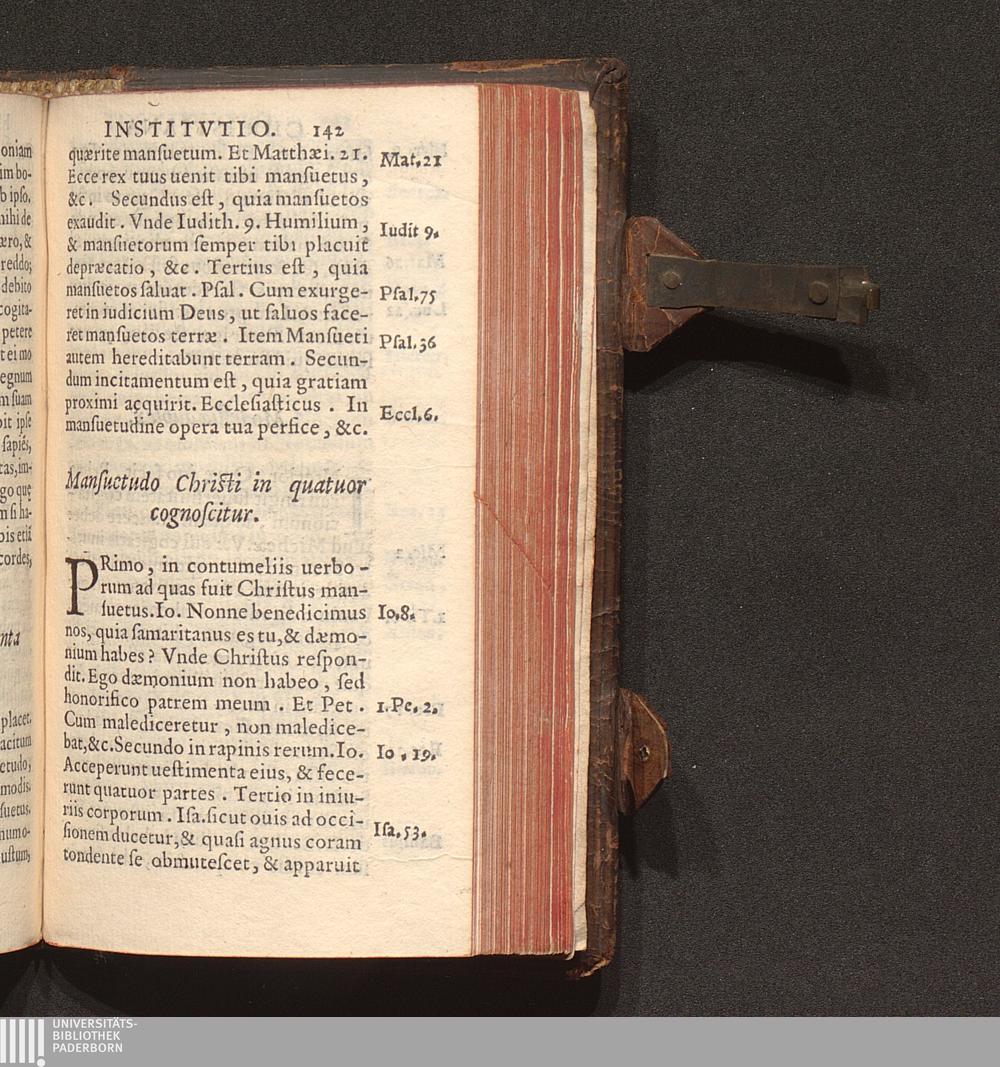 oniam
im bo-
b ipso.
nihi de
æro, &
reddo;
debito
cogita-
petere
t ei mo
egnum
m suam
oit ipse
sapiẽs,
cas, im-
go quę
m si ha-
bis etiã
cordes,
nta
placet.
acitum
etudo,
modis.
suetus.
numo-
ustum,
INSTITVTIO. 142
quærite mansuetum. Et Matthæi. 21.
Ecce rex tuus uenit tibi mansuetus,
&c. Secundus est, quia mansuetos
exaudit. Vnde Iudith. 9. Humilium,
& mansuetorum semper tibi placuit
depræcatio, &c. Tertius est, quia
mansuetos saluat. Psal. Cum exurge-
ret in iudicium Deus, ut saluos face-
ret mansuetos terræ. Item Mansueti
autem hereditabunt terram. Secun-
dum incitamentum est, quia gratiam
proximi acquirit. Ecclesiasticus. In
mansuetudine opera tua persice, &c.
Mat. 21
Iudit 9.
Psal. 75
Psal. 36
Eccl. 6.
Mansuctudo Christi in quatuor
cognoscitur.
PRimo, in contumeliis uerbo-
rum ad quas fuit Christus man-
suetus. Io. Nonne benedicimus
nos, quia samaritanus es tu, & dæmo-
nium habes? Vnde Christus respon-
dit. Ego dæmonium non habeo, sed
honorifico patrem meum. Et Pet.
Cum malediceretur, non maledice-
bat, &c. Secundo in rapinis rerum. Io.
Acceperunt uestimenta eius, & fece-
runt quatuor partes. Tertio in iniu-
riis corporum. Isa. sicut ouis ad occi-
sionem ducetur, & quasi agnus coram
tondente se obmutescet, & apparuit
Io. 8.
1. Pe. 2.
Io. 19.
Isa. 53.
UNIVERSITÄTS-
BIBLIOTHEK
PADERBORN